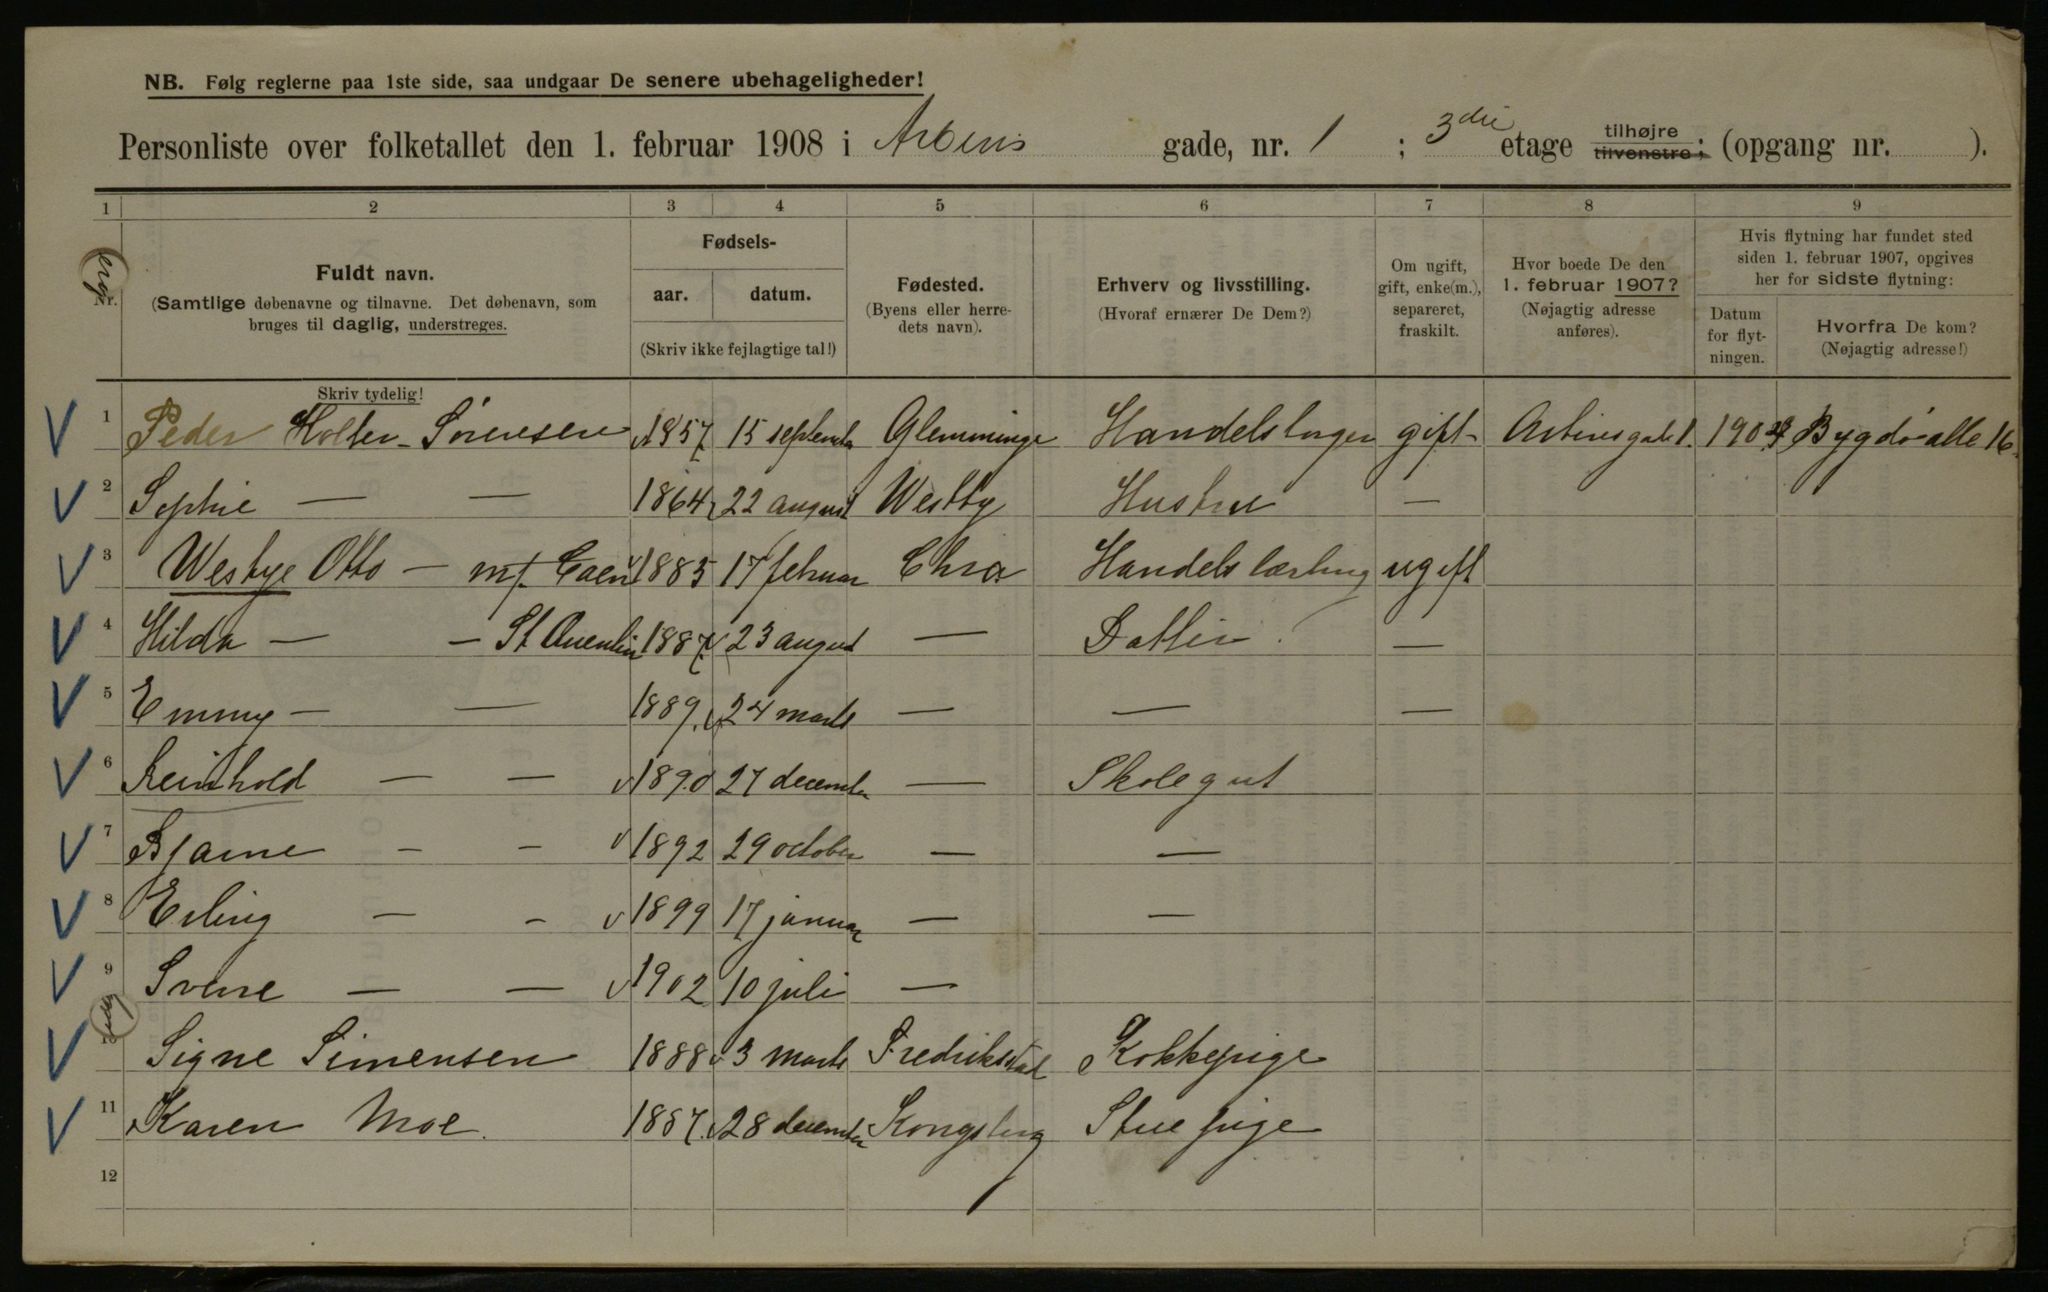 NB. Følg reglerne paa 1ste side, saa undgaar De senere ubehageligheder!
Personliste over folketallet den 1. februar 1908 i Arbins gade, nr. 1 ; 3die etage tilhøjre tilvenstre; (opgang nr. ).
1 2 3 4 5 6 7 8 9
Nr.
Fuldt navn.
(Samtlige døbenavne og tilnavne. Det døbenavn, som
bruges til daglig, understreges.
Skriv tydelig!
Fødsels-
aar. datum.
(Skriv ikke fejlagtige tal!)
Fødested.
(Byens eller herre-
dets navn).
Erhverv og livsstilling.
(Hvoraf ernærer De Dem?)
Om ugift,
gift, enke(m.),
separeret,
fraskilt.
Hvor boede De den
1. februar 1907?
(Nøjagtig adresse
anføres).
Hvis flytning har fundet sted
siden 1. februar 1907, opgives
her for sidste flytning:
Datum
for flyt-
ningen.
Hvorfra De kom?
(Nøjagtig adresse!)
1 Peder Holter-Sörensen 1857 15 september Glemminge Handelsborger gift Arbinsgade 1. Bygdö alle 16
2 Sophie — — 1864 22 august Westby Hustru —
3 Westye Otto — mf. Caen 1885 17 februar Chra Handelslærling ugift
4 Hilda — — St Quentin 1887 23 august — Datter —
5 Emmy — — 1889 24 marts — — —
6 Reinhold — — 1890 27 december — Skolegut
7 Bjarne — — 1892 29 october — —
8 Erling — — 1899 17 januar — —
9 Sverre — — 1902 10 juli —
10 Signe Simensen 1888 3 marts Fredrikstad Kokkepige
11 Karen Moe 1887 28 december Kongsberg Stuepige
12